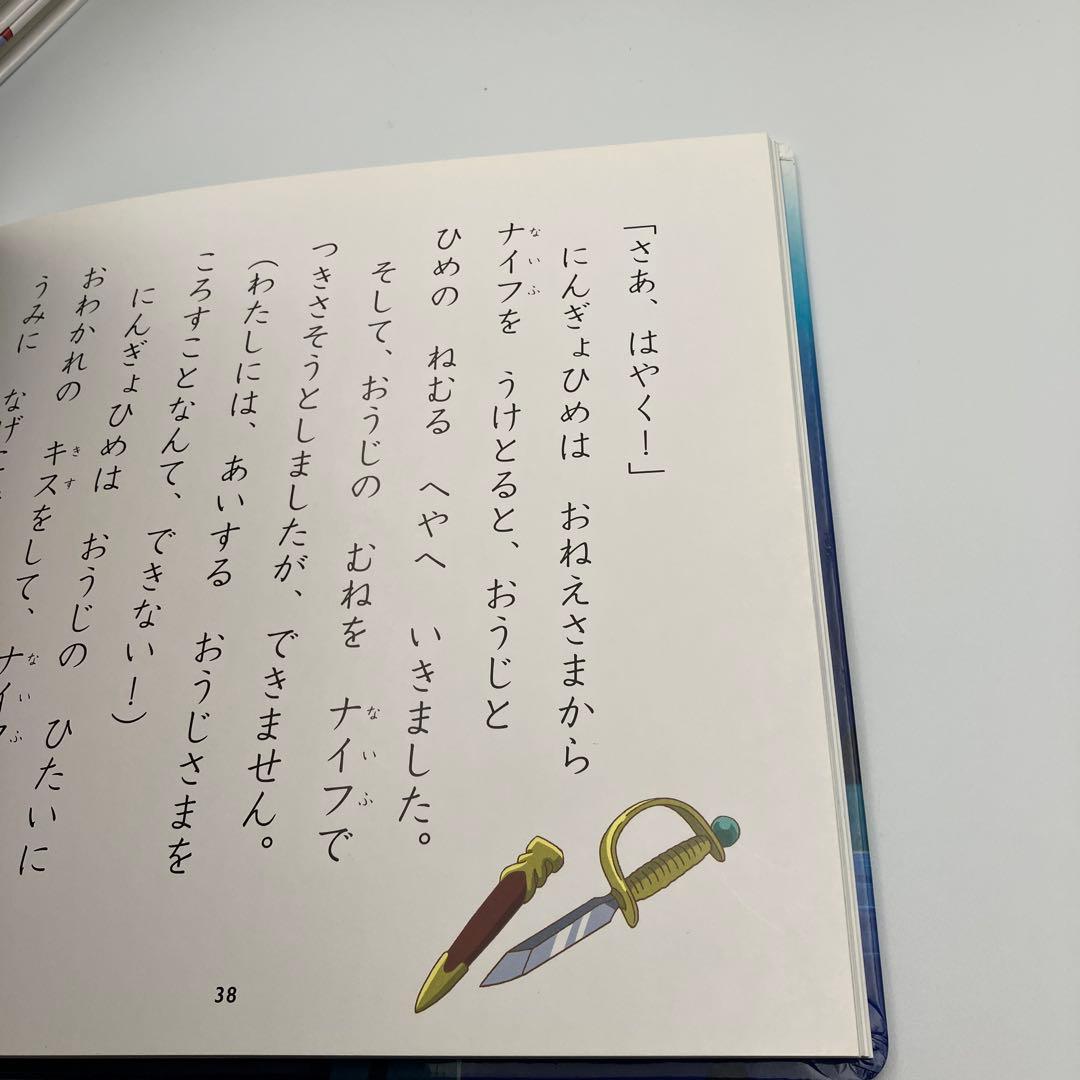 「さあ、はやく!」
にんぎょひめは おねえさまから
ナイフを うけとると、おうじと
ひめの ねむる へやへ いきました。
そして、おうじの むねを ナイフで
つきさそうとしましたが、できません。
(わたしには、あいする おうじさまを
ころすことなんて、できない!)
にんぎょひめは おうじの ひたいに
おわかれの キスをして、ナイフ
うみに なげ
38